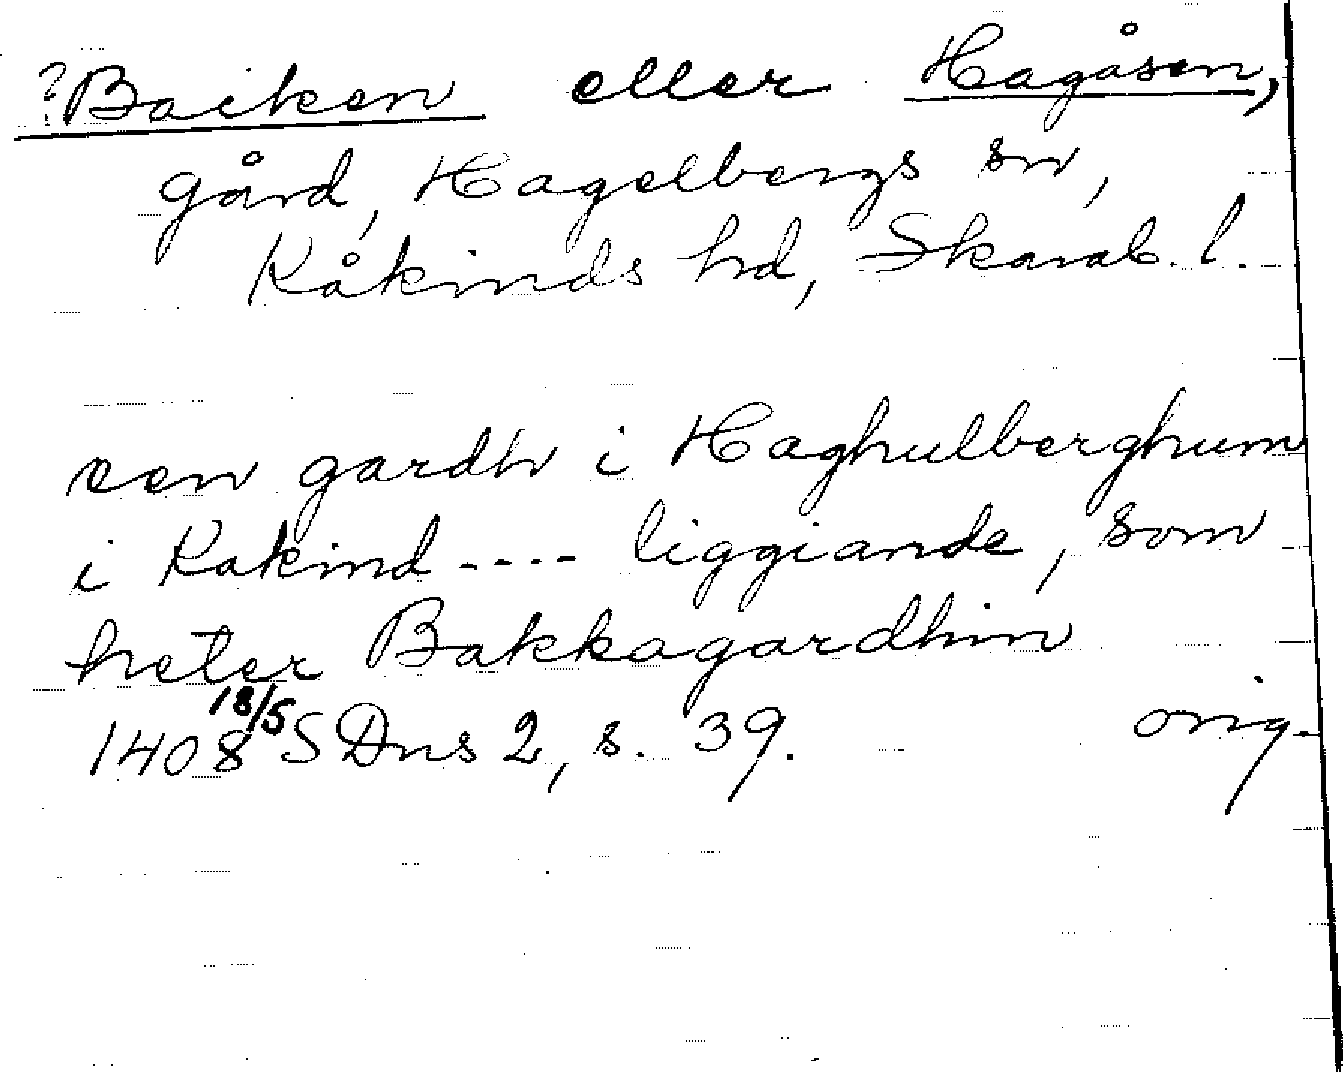 ?Backen eller Hagåsen,
gård, Hagelbergs sn,
Kåkinds hd, Skarab. l.
een gardh i Haghulberghum
i Kakind ---- liggiande, som
heter Bakkagardhin
1408 18/5 SDns 2, s. 39. orig.